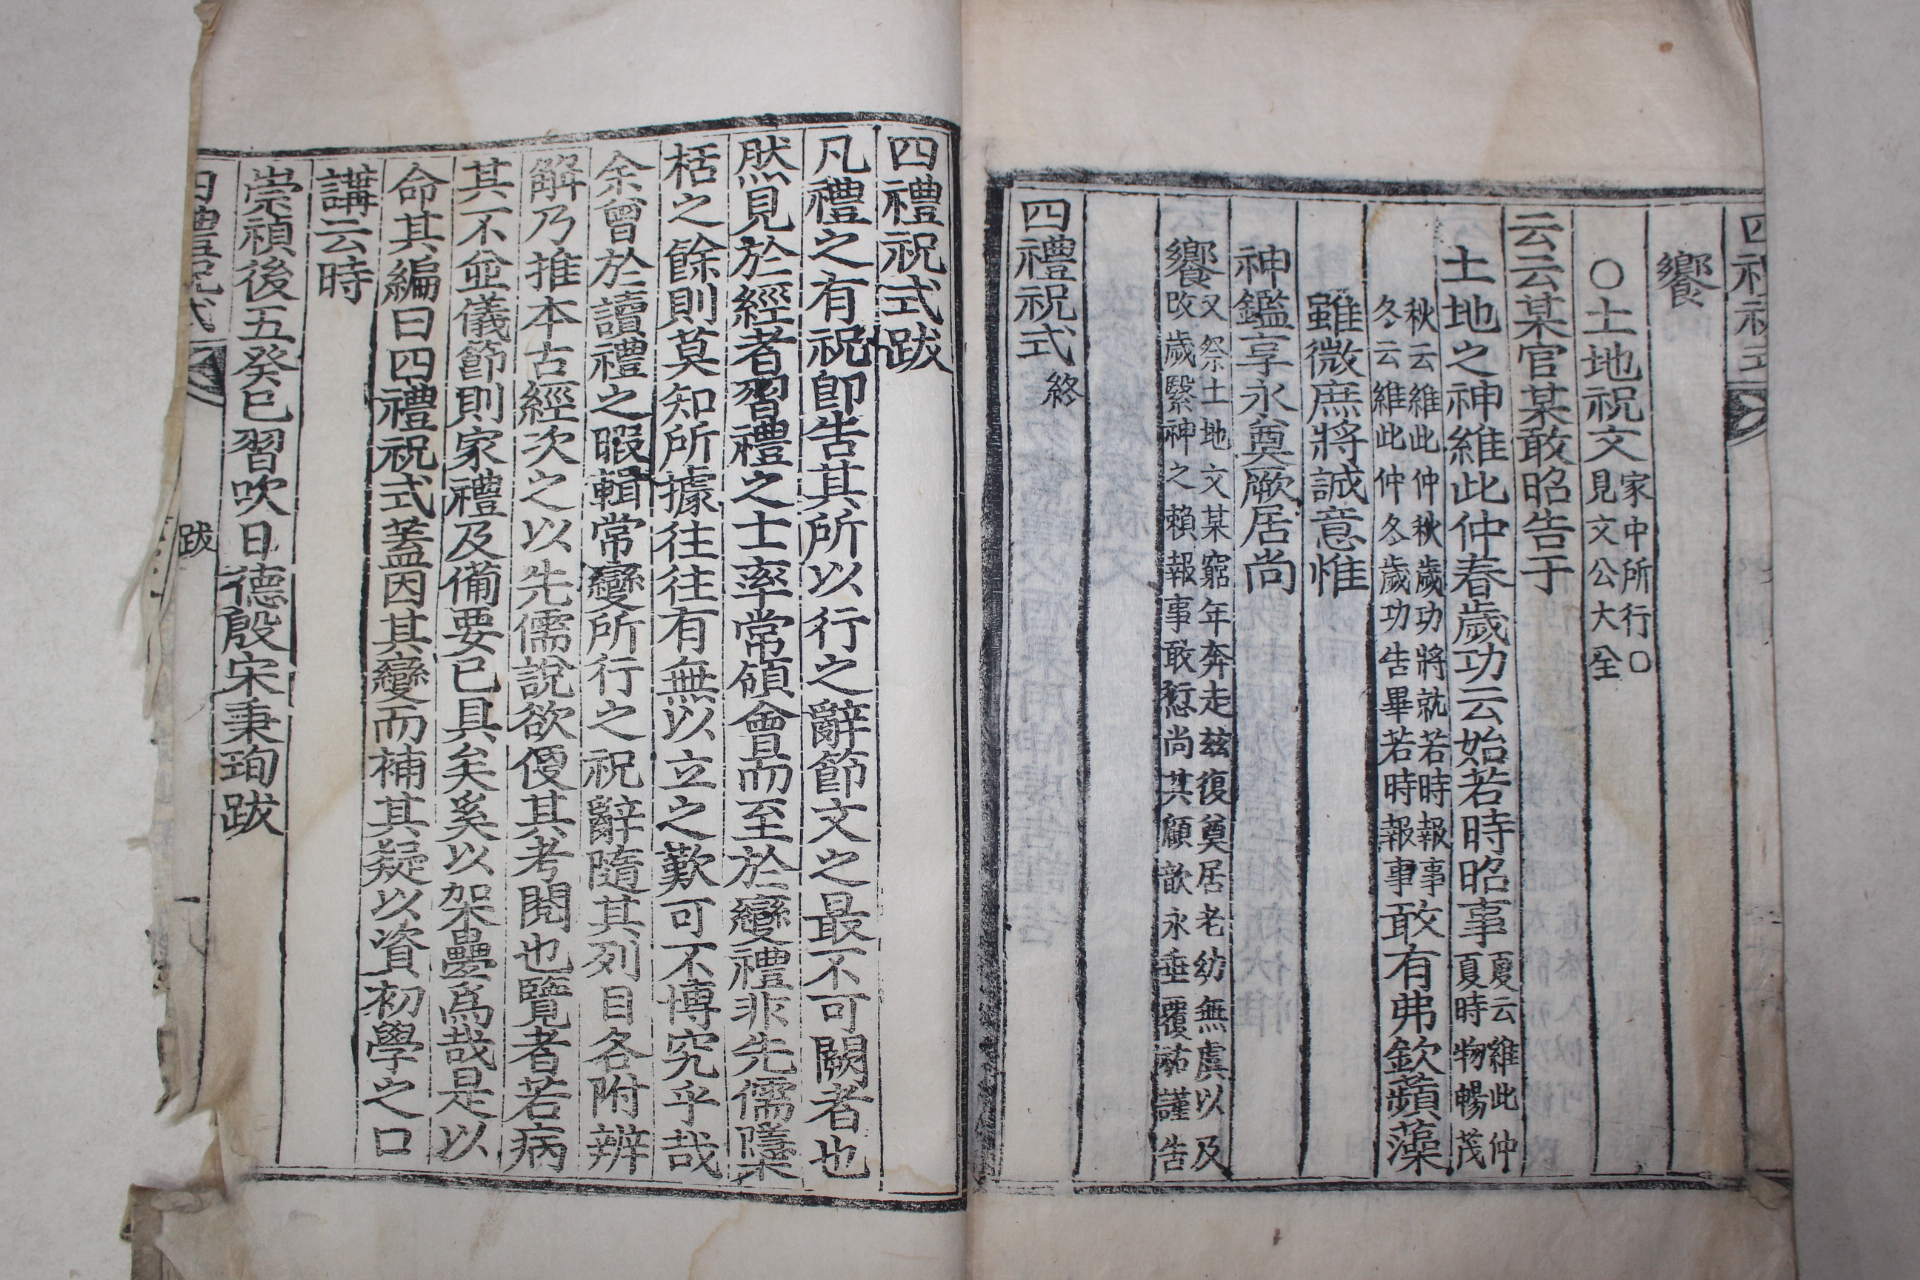 四禮祝式
饗
○土地祝文 家中所行○見文公大全
云云某官某敢昭告于
土地之神維此仲春歲功云始若時昭事 夏云維此仲夏時物暢茂
秋云維此仲秋歲功將就若時報事冬云維此仲冬歲功告畢若時報事 敢有弗欽蘋藻
雖微庶將誠意惟
神鑑享永奠厥居尚
饗 又祭土地文某窮年奔走玆復奠居老幼無虞以及改歲繄神之賴報事敢愆尚其顧歆永垂覆祐謹告
四禮祝式 終
四禮祝式跋
凡禮之有祝卽告其所以行之辭節文之最不可闕者也
然見於經者習禮之士率常領會而至於變禮非先儒隱
栝之餘則莫知所據往往有無以立之歎可不博究乎哉
余曾於讀禮之暇輯常變所行之祝辭隨其列目各附辨
解乃推本古經次之以先儒說欲便其考閱也覽者若病
其不並儀節則家禮及備要已具矣奚以架疊爲哉是以
命其編曰四禮祝式蓋因其變而補其疑以資初學之口
講云時
崇禎後五癸巳習吹日德殷宋秉珣跋
四禮祝式
跋
一